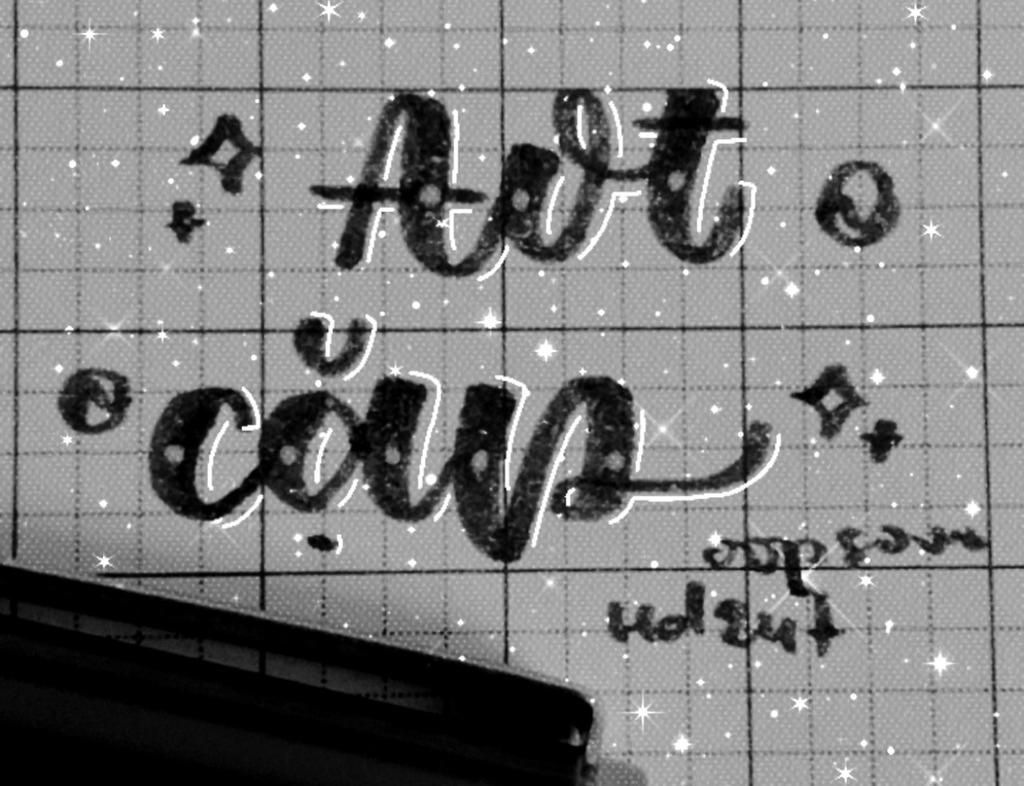 Art
cặp